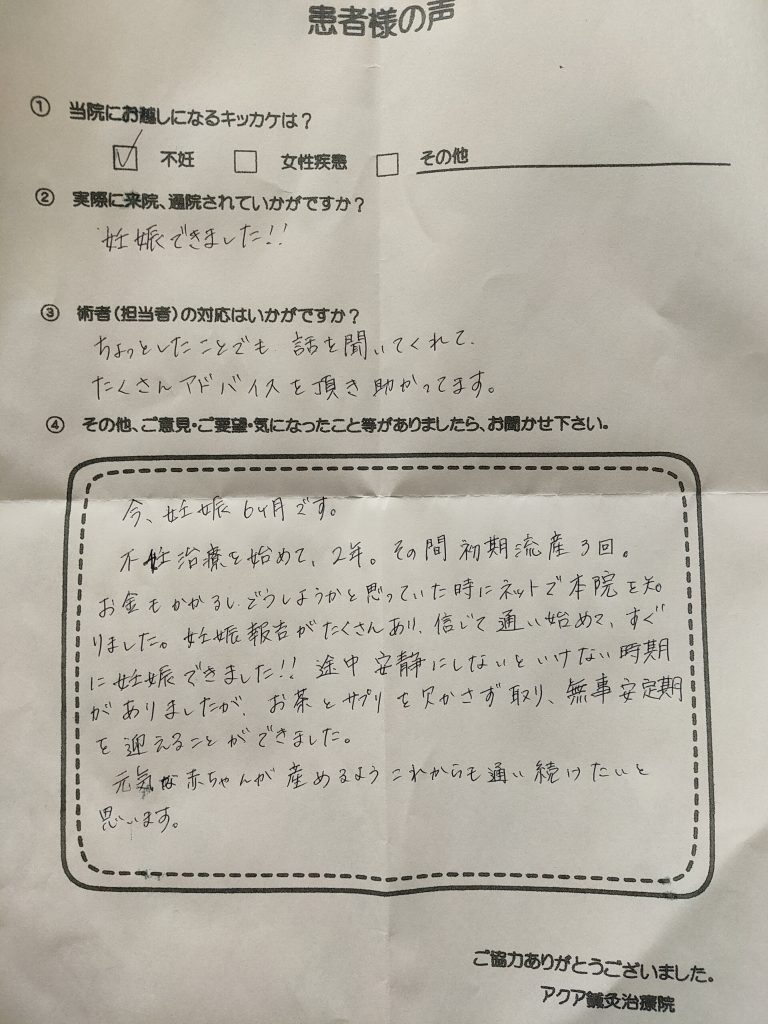 患者様の声
① 当院にお越しになるキッカケは？
☑ 不妊 □ 女性疾患 □ その他
② 実際に来院、通院されていかがですか？
妊娠できました!!
③ 術者（担当者）の対応はいかがですか？
ちょっとしたことでも、話を聞いてくれて、
たくさんアドバイスを頂き助かってます。
④ その他、ご意見・ご要望・気になったこと等がありましたら、お聞かせ下さい。
今、妊娠6ヶ月です。
不妊治療を始めて、2年。その間初期流産3回。
お金もかかるし、どうしようかと思っていた時にネットで本院を知
りました。妊娠報告がたくさんあり、信じて通い始めて、すぐ
に妊娠できました!! 途中安静にしないといけない時期
がありましたが、お茶とサプリを欠かさず取り、無事安定期
を迎えることができました。
元気な赤ちゃんが産めるようこれからも通い続けたいと
思います。
ご協力ありがとうございました。
アクア鍼灸治療院